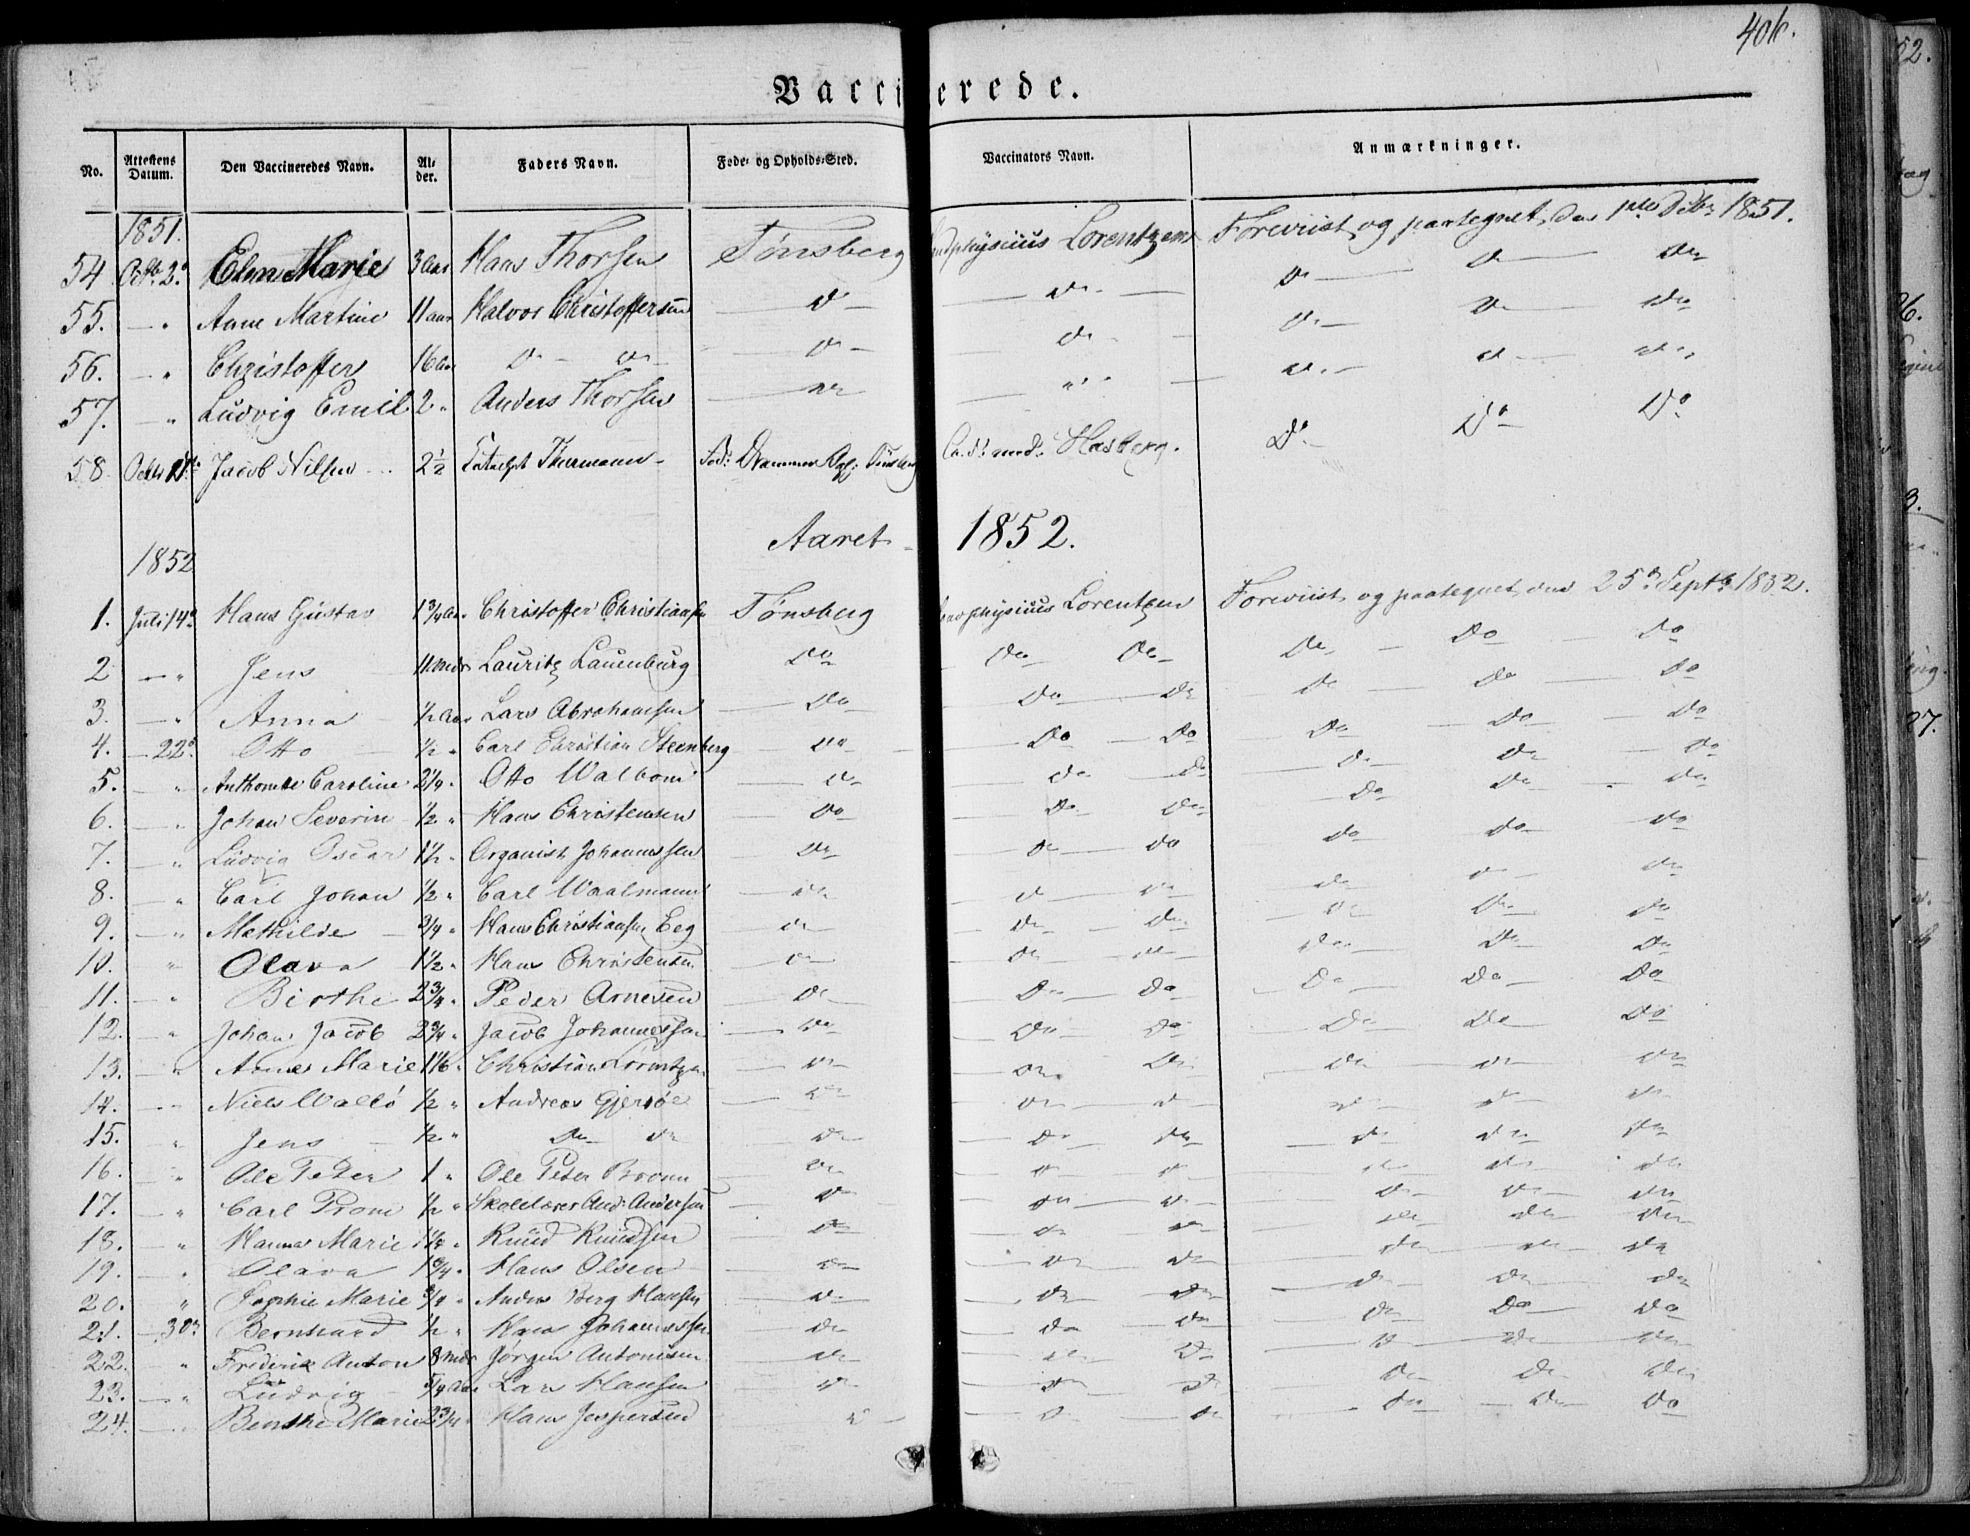 406.
Vaccinerede.
No. Attestens Datum. Den Vaccineredes Navn. Alder. Faders Navn. Føde- og Opholds-Sted. Vaccinators Navn. Anmærkninger.
1851.
54 Octb. 2d Elen Marie 3 Aar Hans Thorsen Tønsberg Landphysicus Lorentzen Foreviist og paategnet den 1ste Octbr 1851.
55. — " Anne Martine 11 aar Halvor Christoffersen — Do — — Do — Do — Do — Do
56. — " Christoffer 16 Aar Do — Do — Do — — Do — Do — Do — Do
57. — " Ludvig Emil 2 " Anders Thorsen — Do — " " — Do — Do — Do
58. Jacob Nilsen 2½ Thurmann Fød: Drammen Opf: Tønsberg Cand: med: Hasberg. Do — Do Do
Aaret 1852.
1852
1. Juli 14d Hans Gustav 1¾ Aar Christoffer Christiansen Tønsberg Landphysicus Lorentzen Foreviist og paategnet den 25d Septbr 1852.
2 — " Jens 11 Mdr Lauritz Lauenburg Do Do Do Do Do Do
3. — " Anna ½ Aar Lars Abrahamsen Do Do Do Do Do Do
4. — 22d Otto ½ " Carl Christian Steenberg Do Do Do Do Do Do
5. " Caroline 2¼ " Otto Walbom Do Do Do Do Do Do
6. — " Johan Severin ½ " Hans Christensen Do Do Do Do Do Do
7. — " Ludvig Oscar 1½ " Organist Johannessen Do Do Do Do Do Do
8. — " Carl Johan ½ " Carl Waalmann Do Do Do Do Do Do
9. — " Mathilde ¾ " Hans Christiansen Eeg Do Do Do Do Do Do
10. " Olava 1½ " Hans Christensen Do Do Do Do Do Do
11. — " Birthe 2¾ " Peder Arnesen Do Do Do Do Do Do
12. " Johan Jacob 2¾ " Jacob Johannessen Do Do Do Do Do Do
13. — " Anne Marie 1⅙ " Christian Lorentzen Do Do Do Do Do Do
14. — Niels Wallö ½ " Andreas Gjersöe Do Do Do Do Do Do
15. " Jens ½ " Do Do Do Do Do Do Do Do
16. — " Ole Peter 1 " Ole Peter Do Do Do Do Do Do
17. — " Carl Prom ½ " Skolelærer And: Andersen Do Do Do Do Do Do
18. — " Hanna Marie " Knud Knudsen Do Do Do Do Do Do
19. — " Olava 1¾ " Hans Olsen Do Do Do Do Do Do
20. " Sophie Marie ¾ " Anders Berg Hansen Do Do Do Do Do Do
21. — 30d Bernhard ½ " Hans Johannessen Do Do Do Do Do Do
22. " Frederik Anton 8 Mdr Jørgen Antonisen Do Do Do Do Do Do
23. — " Ludvig Aar Lars Hansen Do Do Do Do Do Do
24. — " Benthe Marie 2¾ " Hans Jespersen Do Do Do Do Do Do